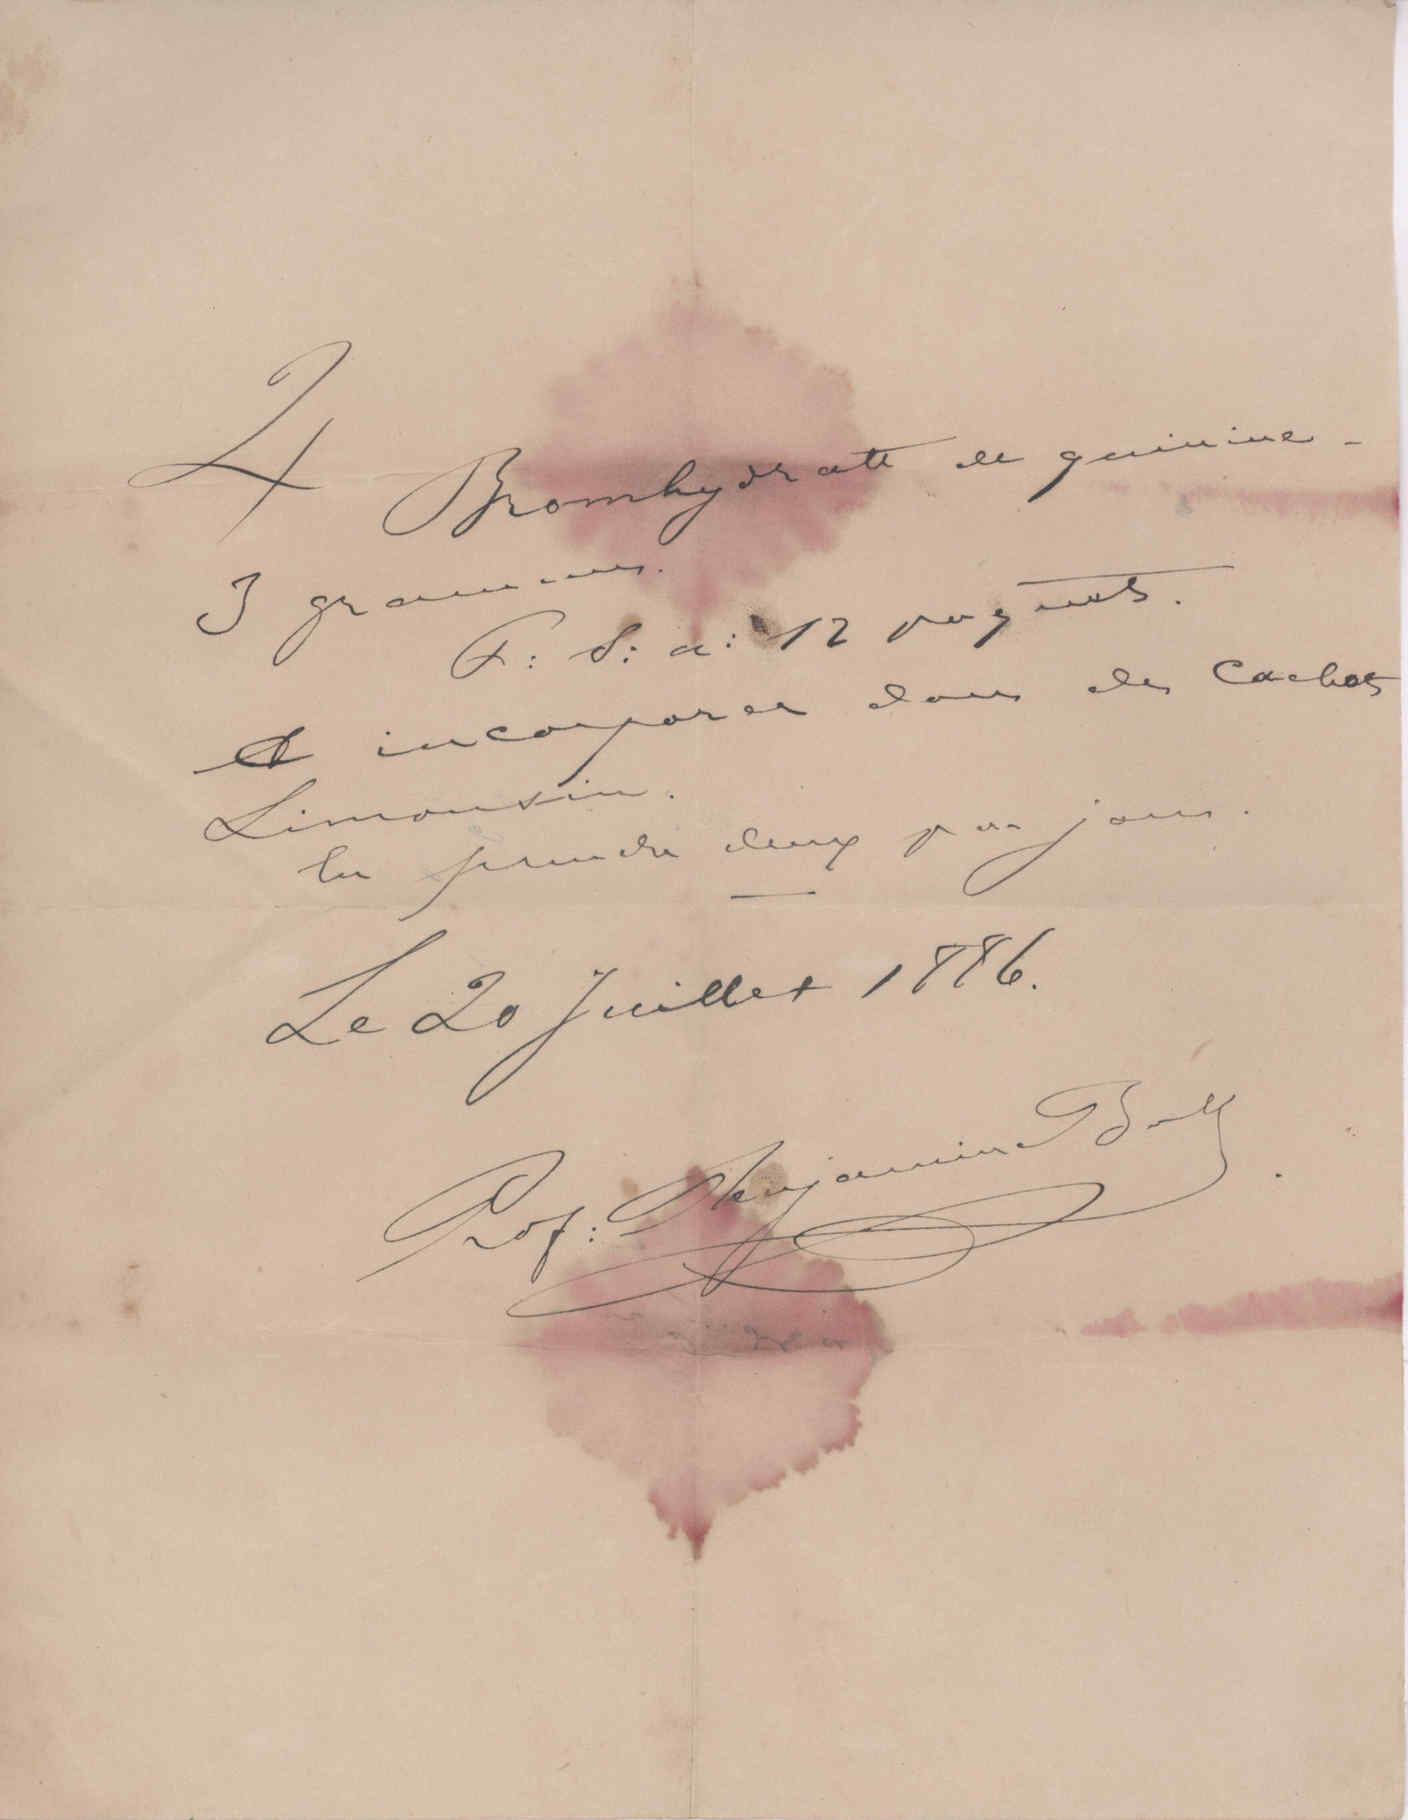 ♃ Bromhydrate de quinine -
3 grammes.
F: S: a: 12 paquets.
et incorporer dans des Cachets
Limousin.
En prendre deux par jour.
Le 20 Juillet 1886.
Prof: Benjamin Ball.